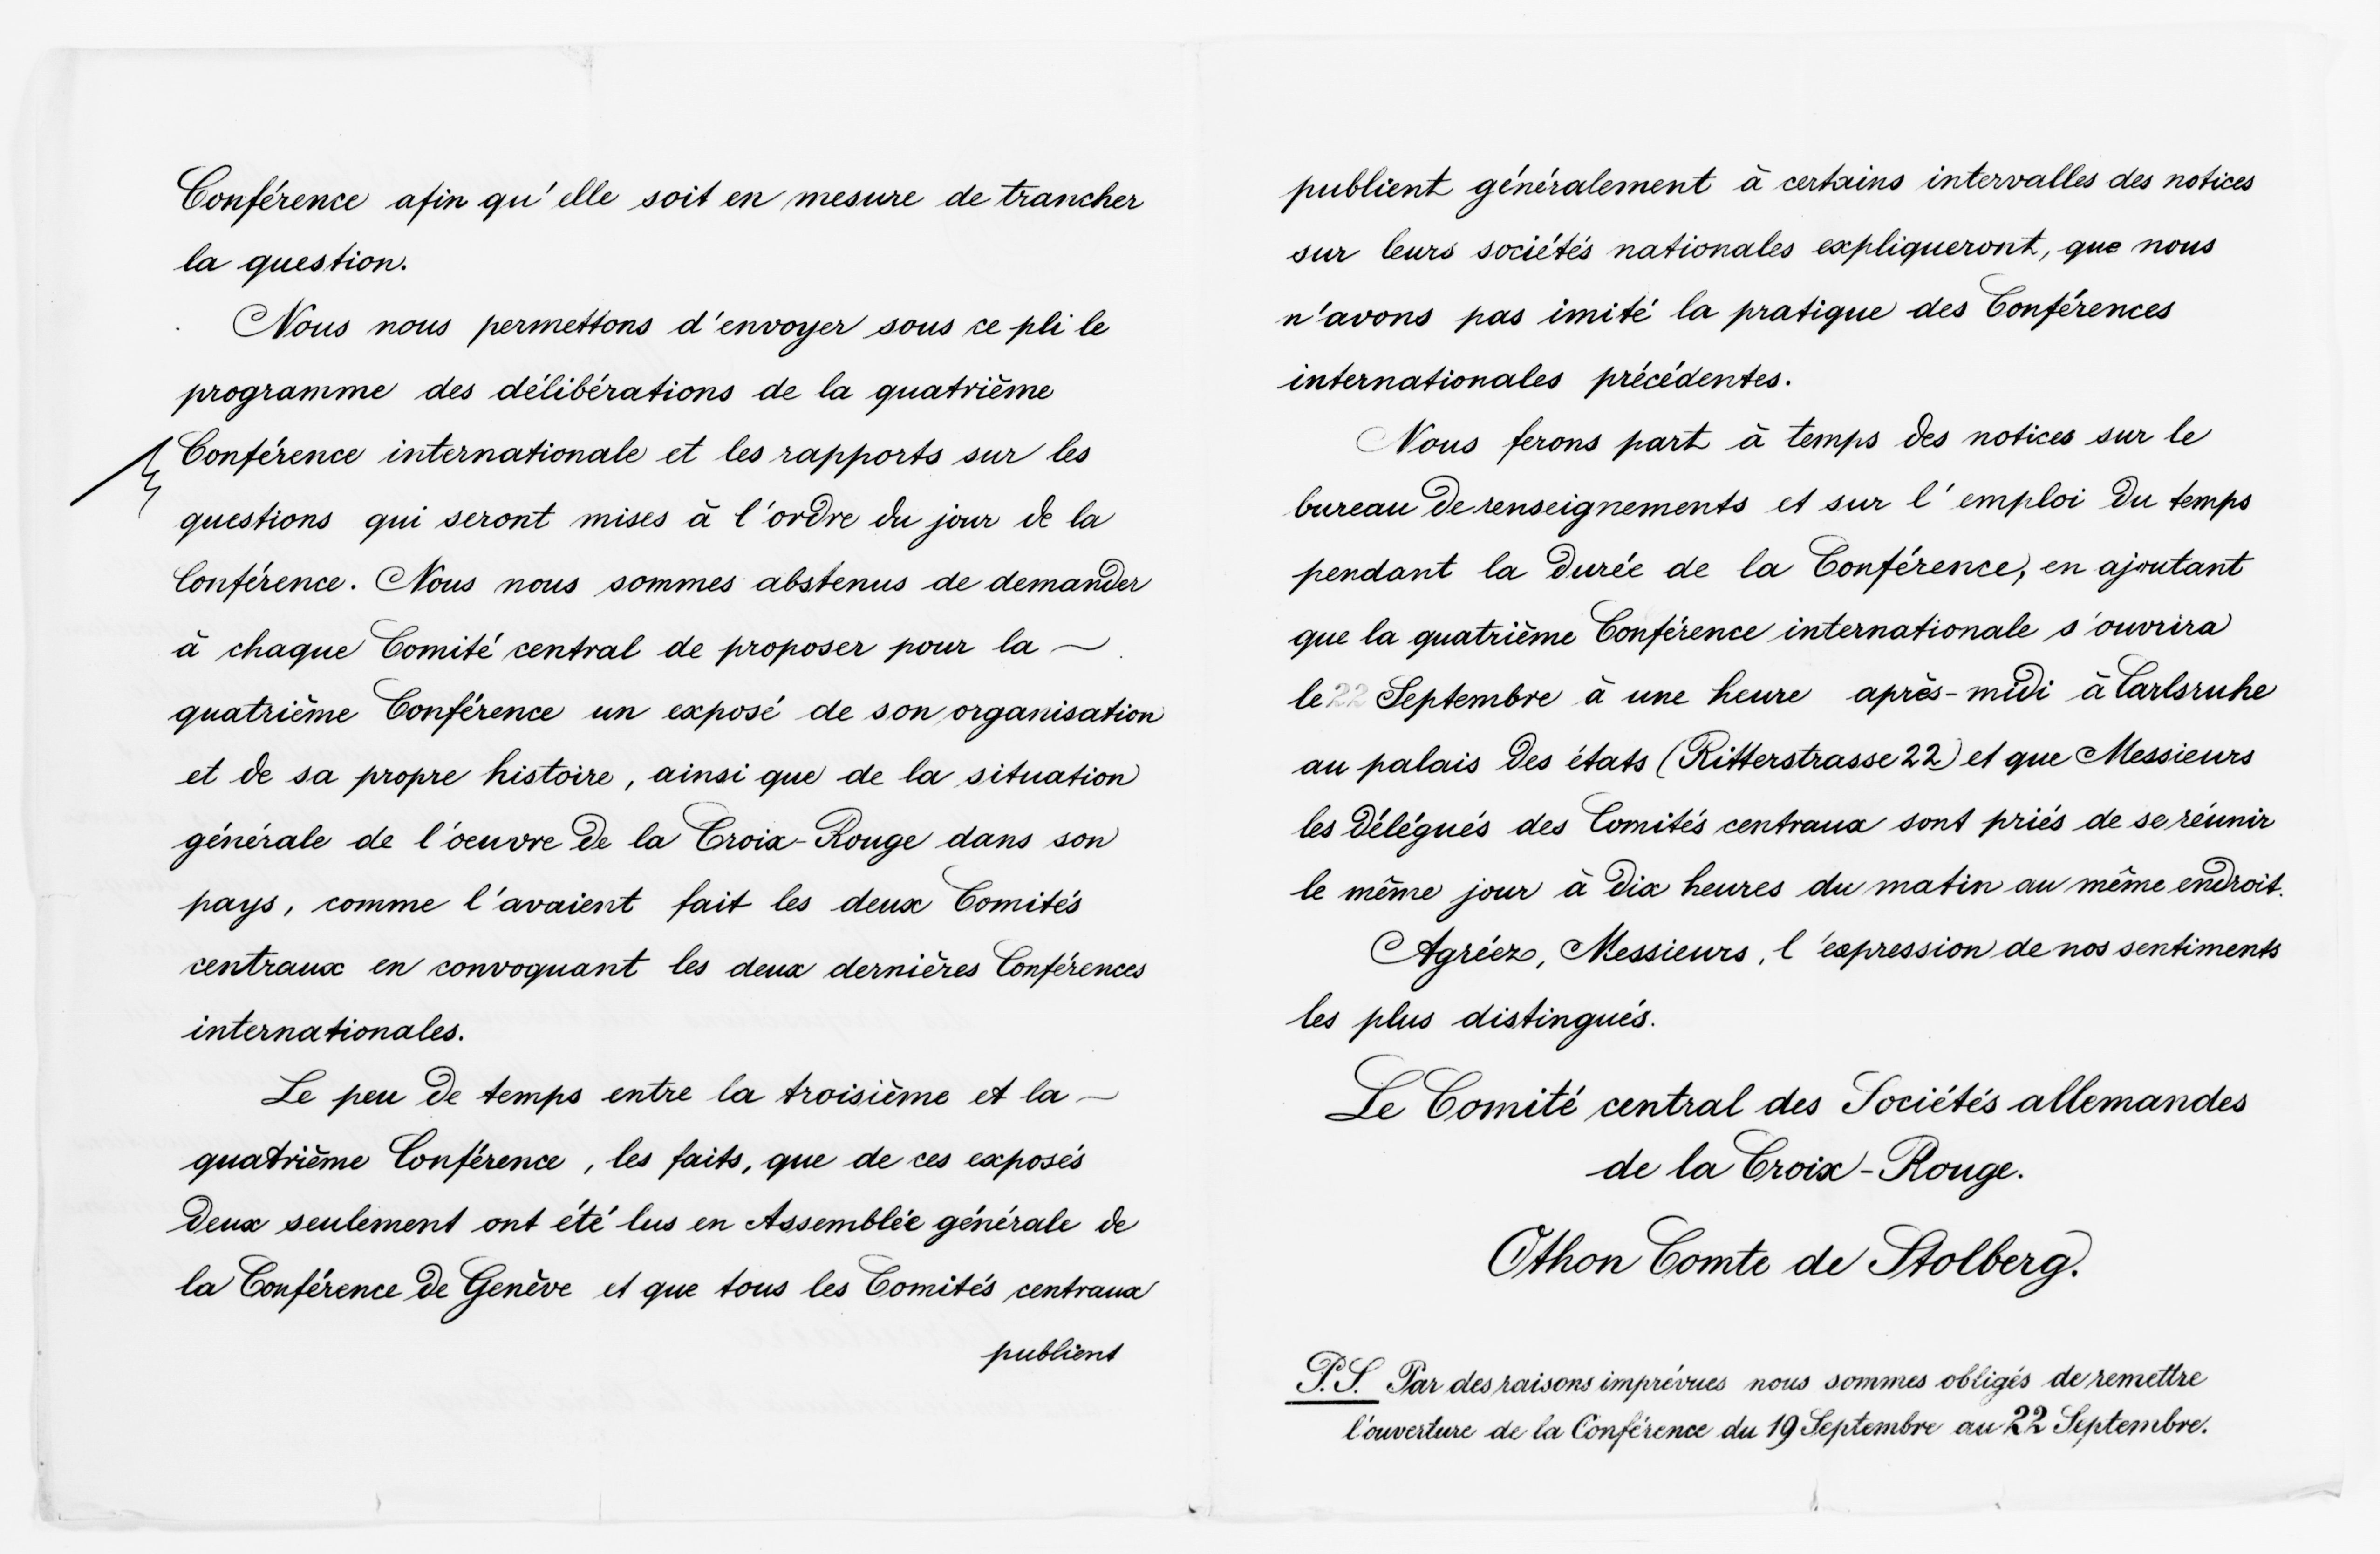 Conférence afin qu'elle soit en mesure de trancher
la question.
Nous nous permettons d'envoyer sous ce pli le
programme des délibérations de la quatrième
Conférence internationale et les rapports sur les
questions qui seront mises à l'ordre du jour de la
Conférence. Nous nous sommes abstenus de demander
à chaque Comité central de proposer pour la —
quatrième Conférence un exposé de son organisation
et de sa propre histoire, ainsi que de la situation
générale de l'oeuvre de la Croix-Rouge dans son
pays, comme l'avaient fait les deux Comités
centraux en convoquant les deux dernières Conférences
internationales.
Le peu de temps entre la troisième et la —
quatrième Conférence, les faits, que de ces exposés
deux seulement ont été lus en Assemblée générale de
la Conférence de Genève et que tous les Comités centraux
publient
publient généralement à certains intervalles des notices
sur leurs sociétés nationales expliqueront, que nous
n'avons pas imité la pratique des Conférences
internationales précédentes.
Nous ferons part à temps des notices sur le
bureau de renseignements et sur l'emploi du temps
pendant la durée de la Conférence, en ajoutant
que la quatrième Conférence internationale s'ouvrira
le 22 Septembre à une heure après-midi à Carlsruhe
au palais des états (Ritterstrasse 22) et que Messieurs
les délégués des Comités centraux sont priés de se réunir
le même jour à dix heures du matin au même endroit.
Agréez, Messieurs, l'expression de nos sentiments
les plus distingués.
Le Comité central des Sociétés allemandes
de la Croix-Rouge.
Othon Comte de Stolberg.
P.S. Par des raisons imprévues nous sommes obligés de remettre
l'ouverture de la Conférence du 19 Septembre au 22 Septembre.